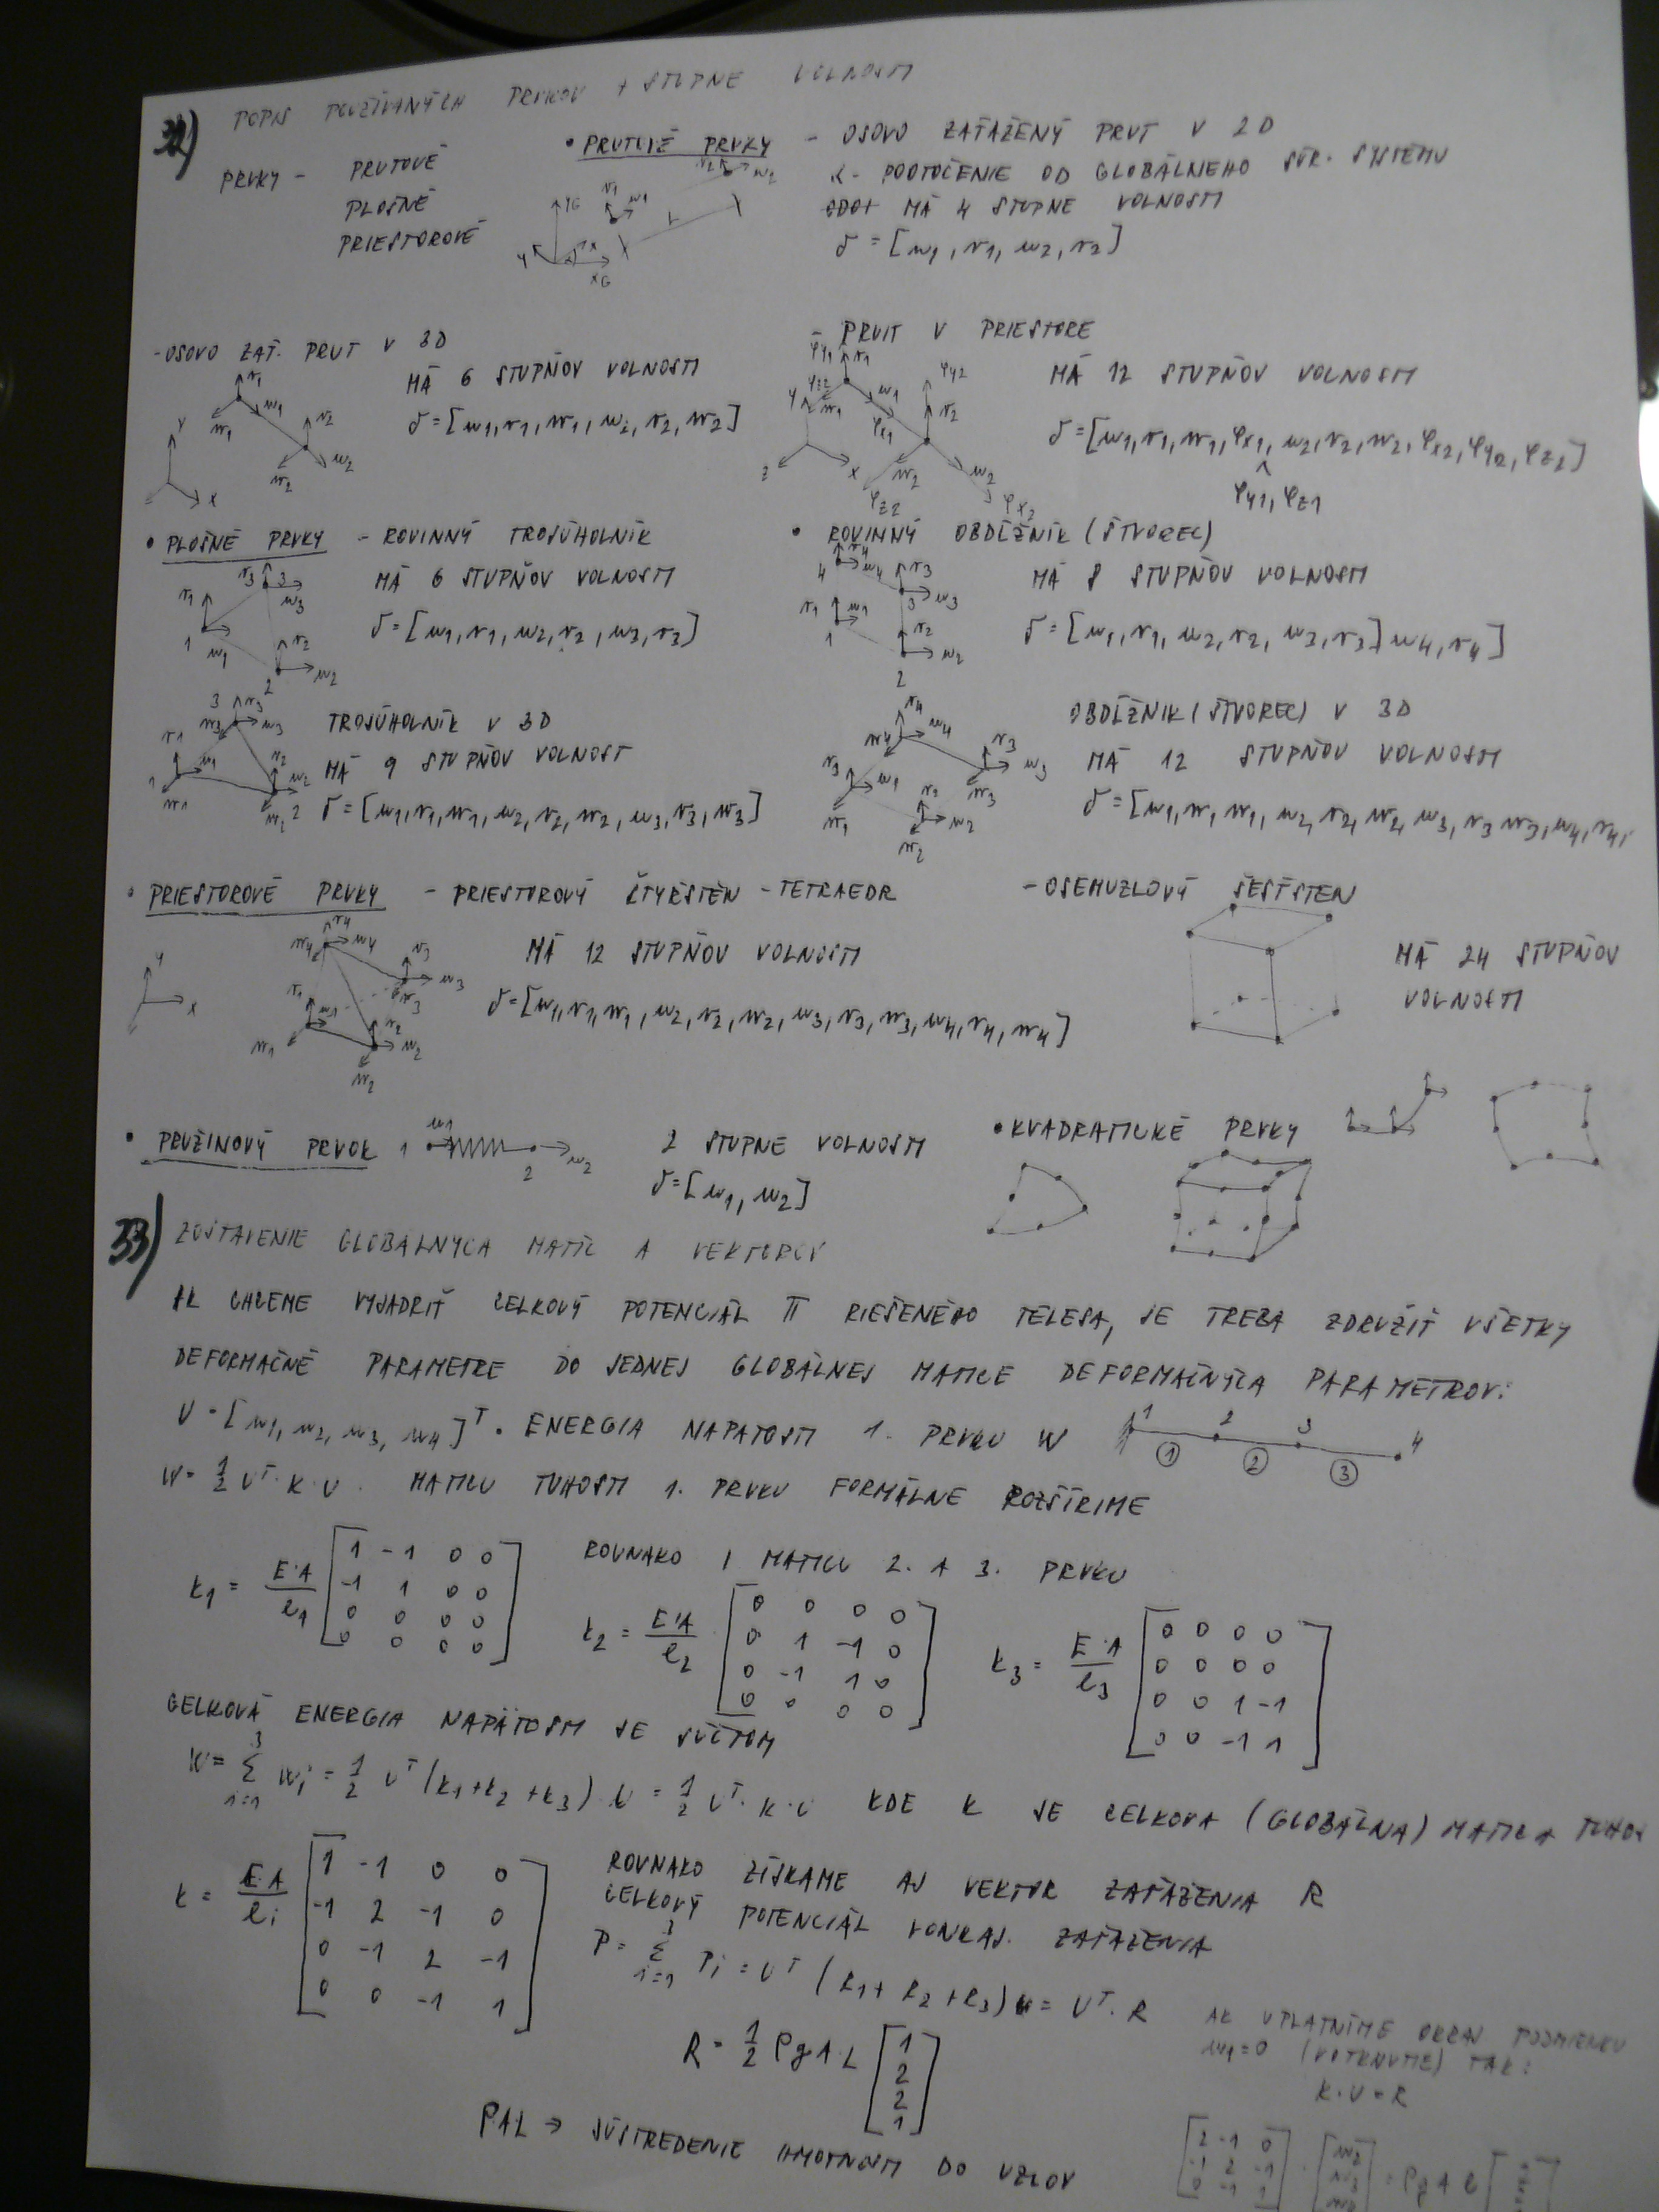 32) POPIS POUŽÍVANÝCH PRVKOV + STUPNE VOLNOSTI
PRVKY - PRUTOVÉ
PLOŠNÉ
PRIESTOROVÉ
• PRUTOVÉ PRVKY - OSOVO ZAŤAŽENÝ PRUT V 2D
α - POOTOČENIE OD GLOBÁLNEHO SÚR. SYSTÉMU
MÁ 4 STUPNE VOLNOSTI
δ = [u1, v1, u2, v2]
YG
XG
- OSOVO ZAŤ. PRUT V 3D
MÁ 6 STUPŇOV VOLNOSTI
δ = [u1, v1, w1, u2, v2, w2]
- PRUT V PRIESTORE
MÁ 12 STUPŇOV VOLNOSTI
δ = [u1, v1, w1, φx1, u2, v2, w2, φx2, φy2, φz2]
^
φy1, φz1
• PLOŠNÉ PRVKY - ROVINNÝ TROJÚHOLNÍK
MÁ 6 STUPŇOV VOLNOSTI
δ = [u1, v1, u2, v2, u3, v3]
• ROVINNÝ OBDĹŽNÍK (ŠTVOREC)
MÁ 8 STUPŇOV VOLNOSTI
δ = [u1, v1, u2, v2, u3, v3] u4, v4]
TROJÚHOLNÍK V 3D
MÁ 9 STUPŇOV VOLNOST
δ = [u1, v1, w1, u2, v2, w2, u3, v3, w3]
OBDĹŽNIK (ŠTVOREC) V 3D
MÁ 12 STUPŇOV VOLNOSTI
δ = [u1, v1, w1, u2, v2, w2, u3, v3 w3, u4, v4,
• PRIESTOROVÉ PRVKY - PRIESTOROVÝ ŠTYRSTEN - TETRAEDR
MÁ 12 STUPŇOV VOLNOSTI
δ = [u1, v1, w1, u2, v2, w2, u3, v3, w3, u4, v4, w4]
- OSEMUZLOVÝ ŠESŤSTEN
MÁ 24 STUPŇOV
VOLNOSTI
• PRUŽINOVÝ PRVOK 1 u1 2 u2
2 STUPNE VOLNOSTI
δ = [u1, u2]
• KVADRATICKÉ PRVKY
33) ZOSTAVENIE GLOBÁLNYCH MATÍC A VEKTOROV
AK CHCEME VYJADRIŤ CELKOVÝ POTENCIÁL Π RIEŠENÉHO TELESA, JE TREBA ZDRUŽIŤ VŠETKY
DEFORMAČNÉ PARAMETRE DO JEDNEJ GLOBÁLNEJ MATICE DEFORMAČNÝCH PARAMETROV:
U = [u1, u2, u3, u4]^T. ENERGIA NAPATOSTI 1. PRVKU W
1 2 3 4
① ② ③
W = 1/2 U^T · K · U. MATICU TUHOSTI 1. PRVKU FORMÁLNE ROZŠÍRIME
K1 = E·A/l1 [1 -1 0 0
-1 1 0 0
0 0 0 0
0 0 0 0]
ROVNAKO I MATICU 2. A 3. PRVKU
K2 = E·A/l2 [0 0 0 0
0 1 -1 0
0 -1 1 0
0 0 0 0]
K3 = E·A/l3 [0 0 0 0
0 0 0 0
0 0 1 -1
0 0 -1 1]
CELKOVÁ ENERGIA NAPÄTOSTI JE SÚČTOM
W = Σ(i=1..3) Wi = 1/2 U^T (K1+K2+K3) · U = 1/2 U^T · K · U KDE K JE CELKOVA (GLOBÁLNA) MATICA TUHOS
K = E·A/li [1 -1 0 0
-1 2 -1 0
0 -1 2 -1
0 0 -1 1]
ROVNAKO ZÍSKAME AJ VEKTOR ZAŤAŽENIA R
CELKOVÝ POTENCIÁL VONKAJ. ZAŤAŽENIA
P = Σ(i=1..3) Pi = U^T (R1 + R2 + R3) = U^T · R
R = 1/2 ρgA·L [1
2
2
1]
ρAL → SÚSTREDENIE HMOTNOSTI DO UZLOV
AK UPLATNÍME OKRAJ PODMIENKU
u1 = 0 (VOTKNUTIE) TAK:
K·U = R
[2 -1 0
-1 2 -1
0 -1 1] · [u2
u3
u4] = ρgAl